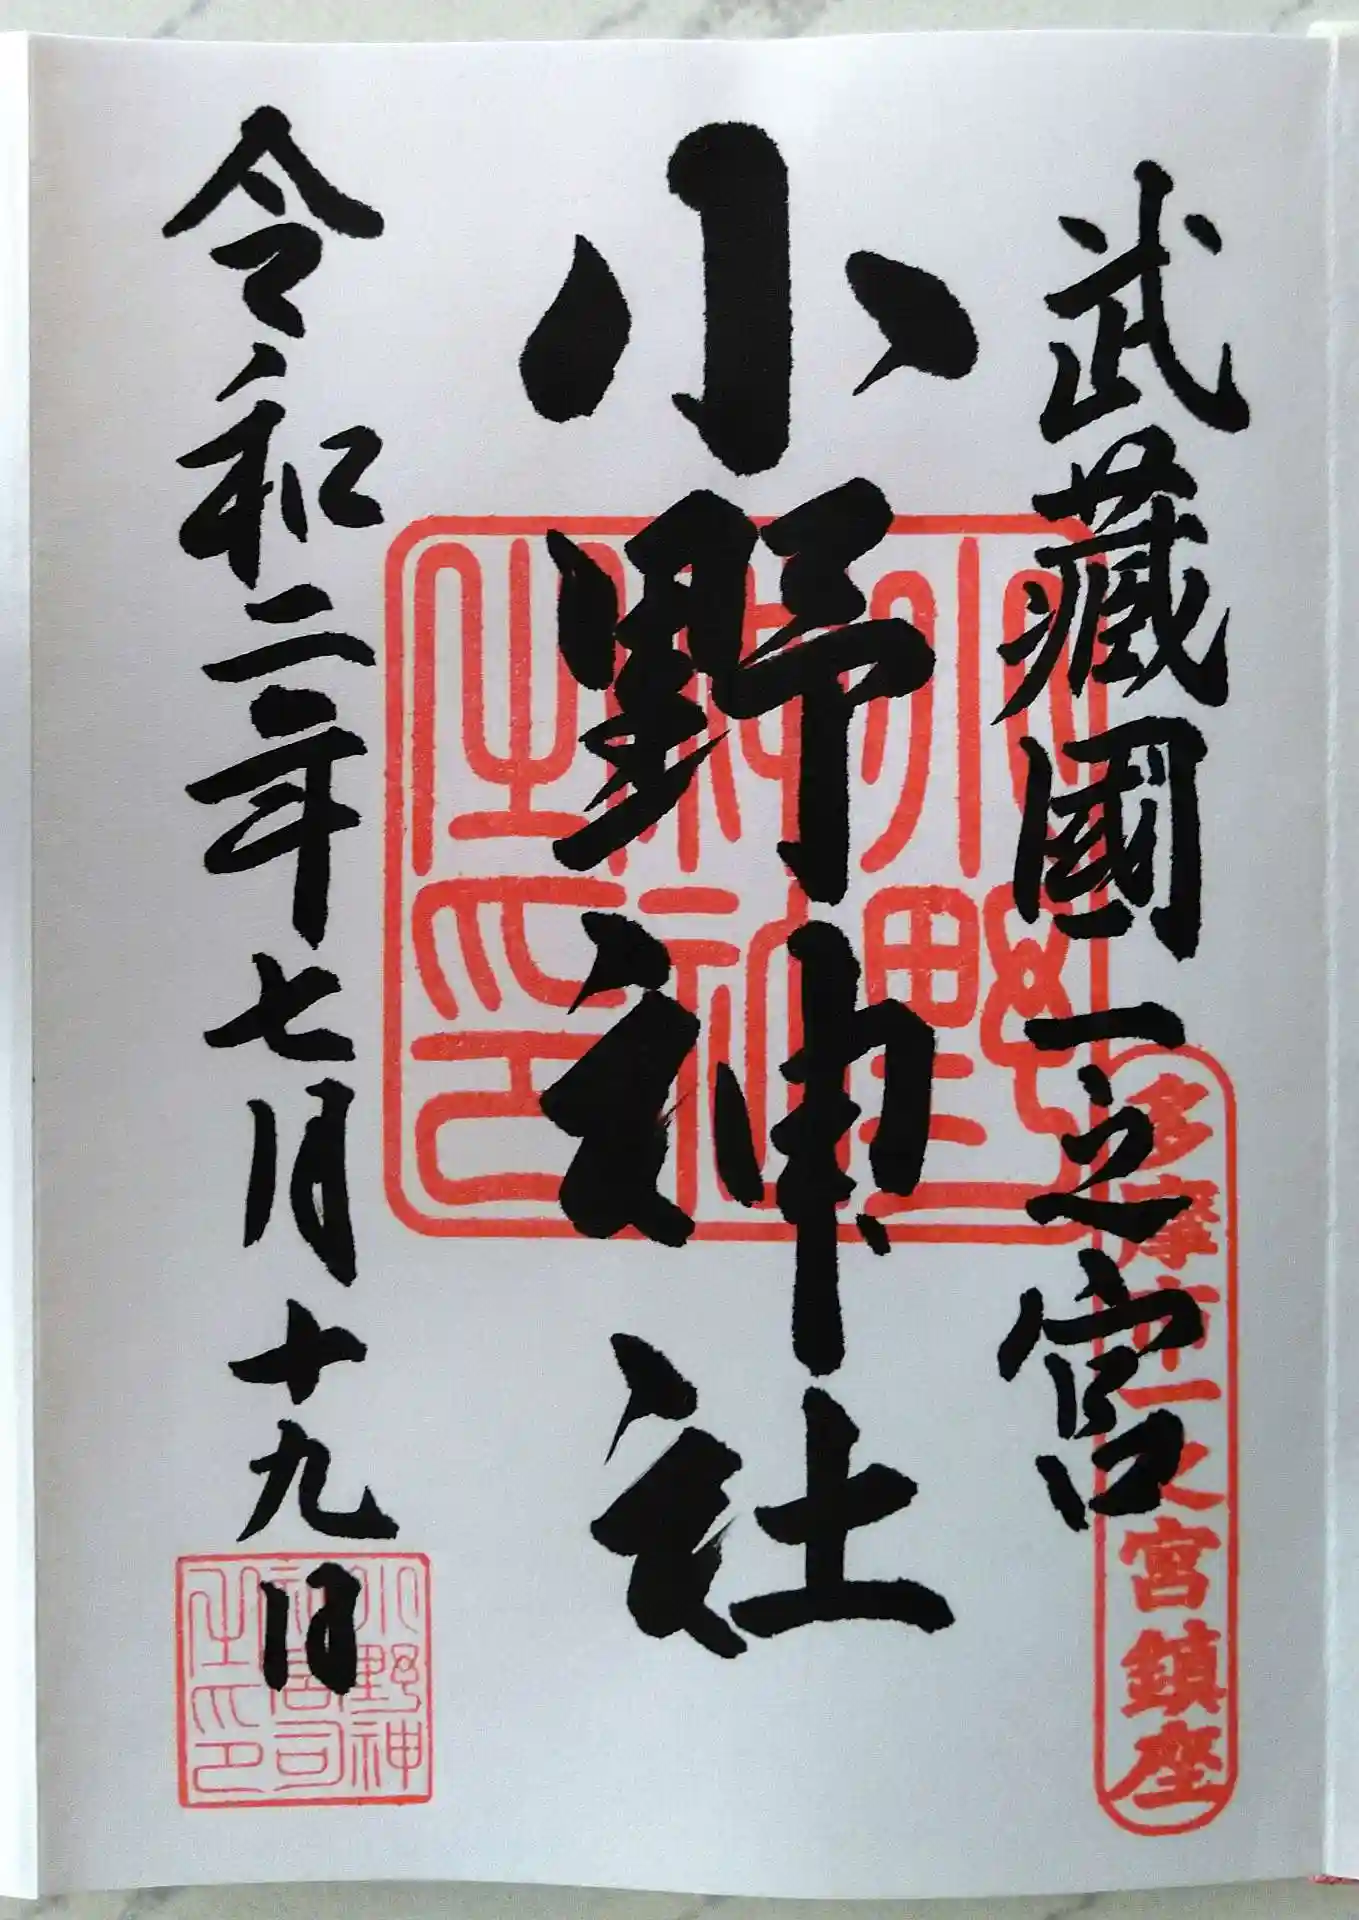 武藏國一之宮
多摩市一之宮鎮座
小野神社
小野神社之印
令和二年七月十九日
小野神社宮司之印